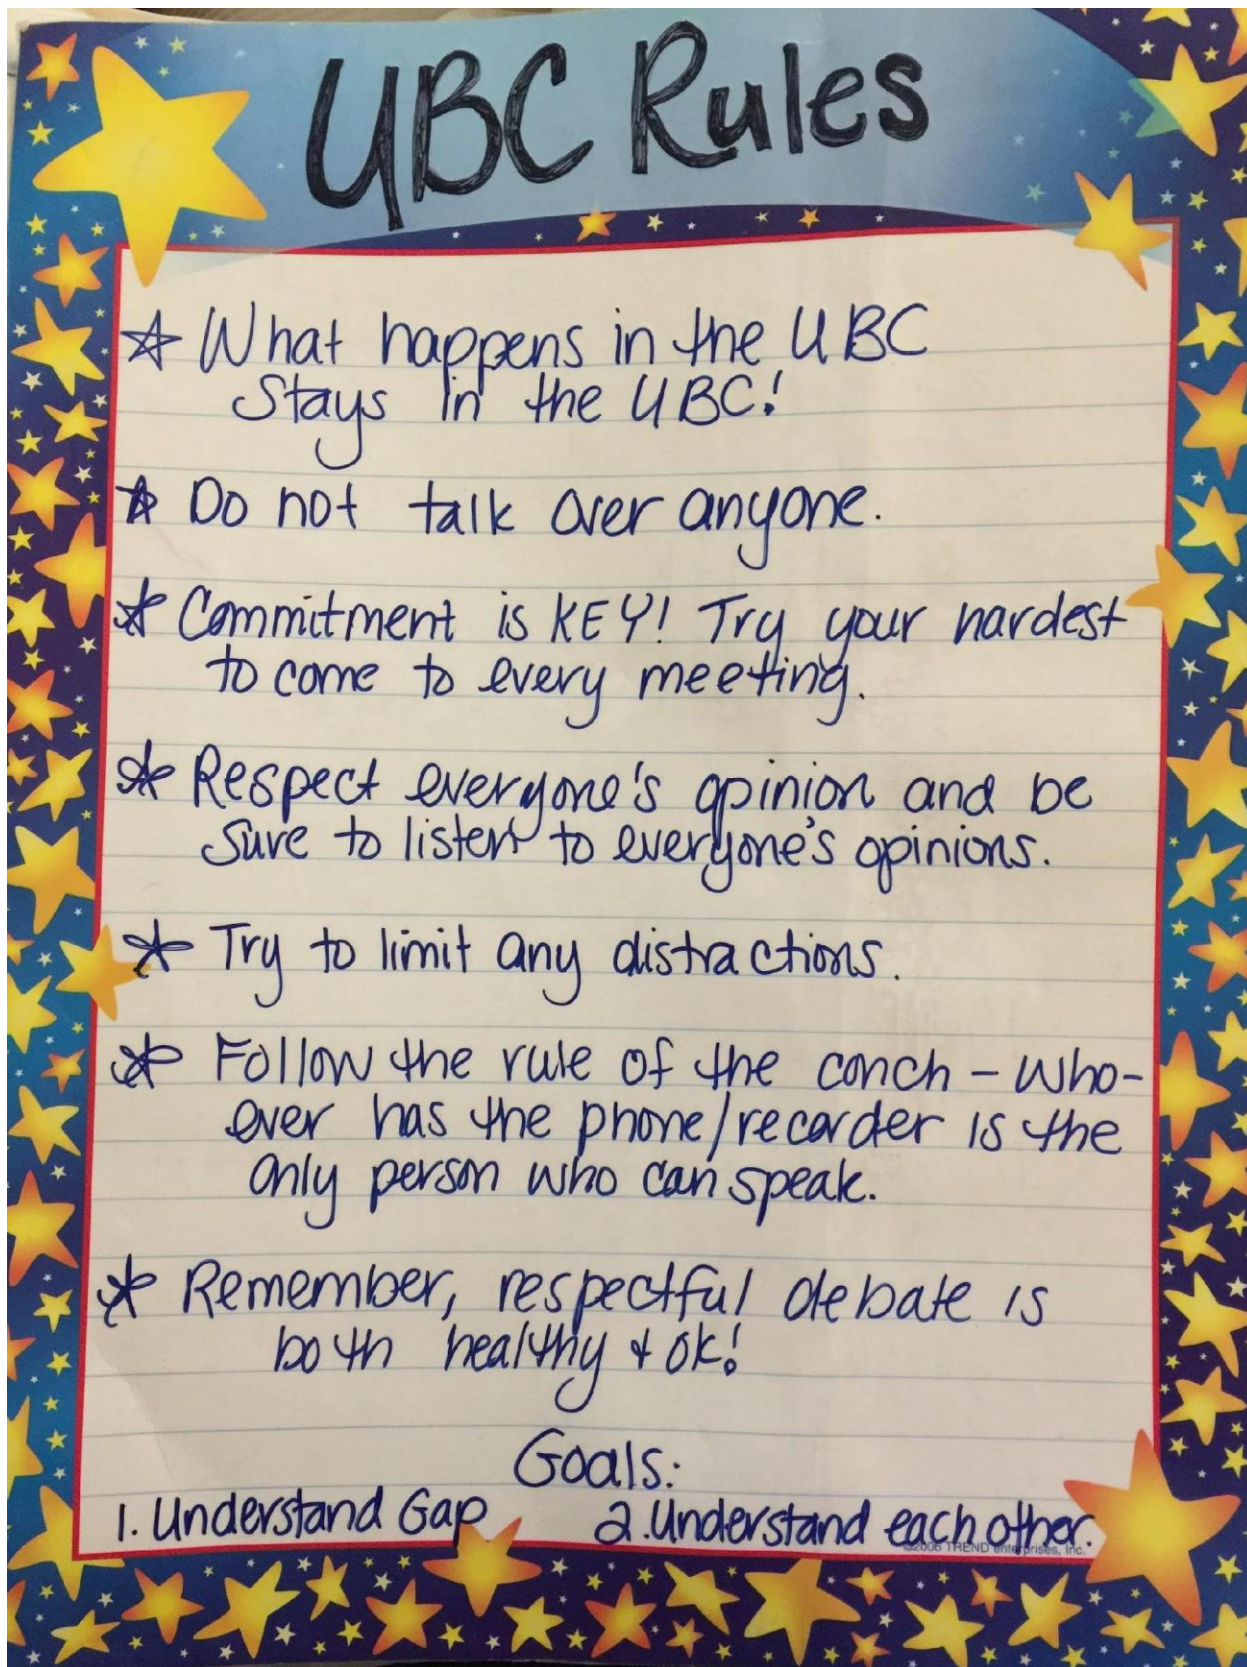 UBC Rules
☆ What happens in the UBC
Stays in the UBC!
☆ Do not talk over anyone.
☆ Commitment is KEY! Try your hardest
to come to every meeting.
☆ Respect everyone's opinion and be
sure to listen to everyone's opinions.
☆ Try to limit any distractions.
☆ Follow the rule of the conch - who-
ever has the phone/recorder is the
only person who can speak.
☆ Remember, respectful debate is
both healthy & ok!
Goals:
1. Understand Gap 2. Understand each other.
©2006 TREND enterprises, Inc.